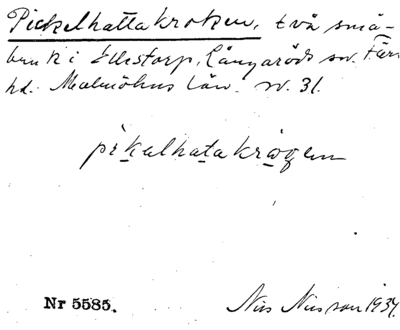 Pickelhattakroken, två små-
bruk i Ellstorp, Långaröds sn. Färs
hd. Malmöhus län. nr. 31.
pikalhatakrågen
Nr 5585.
Nils Nilsson 1934.